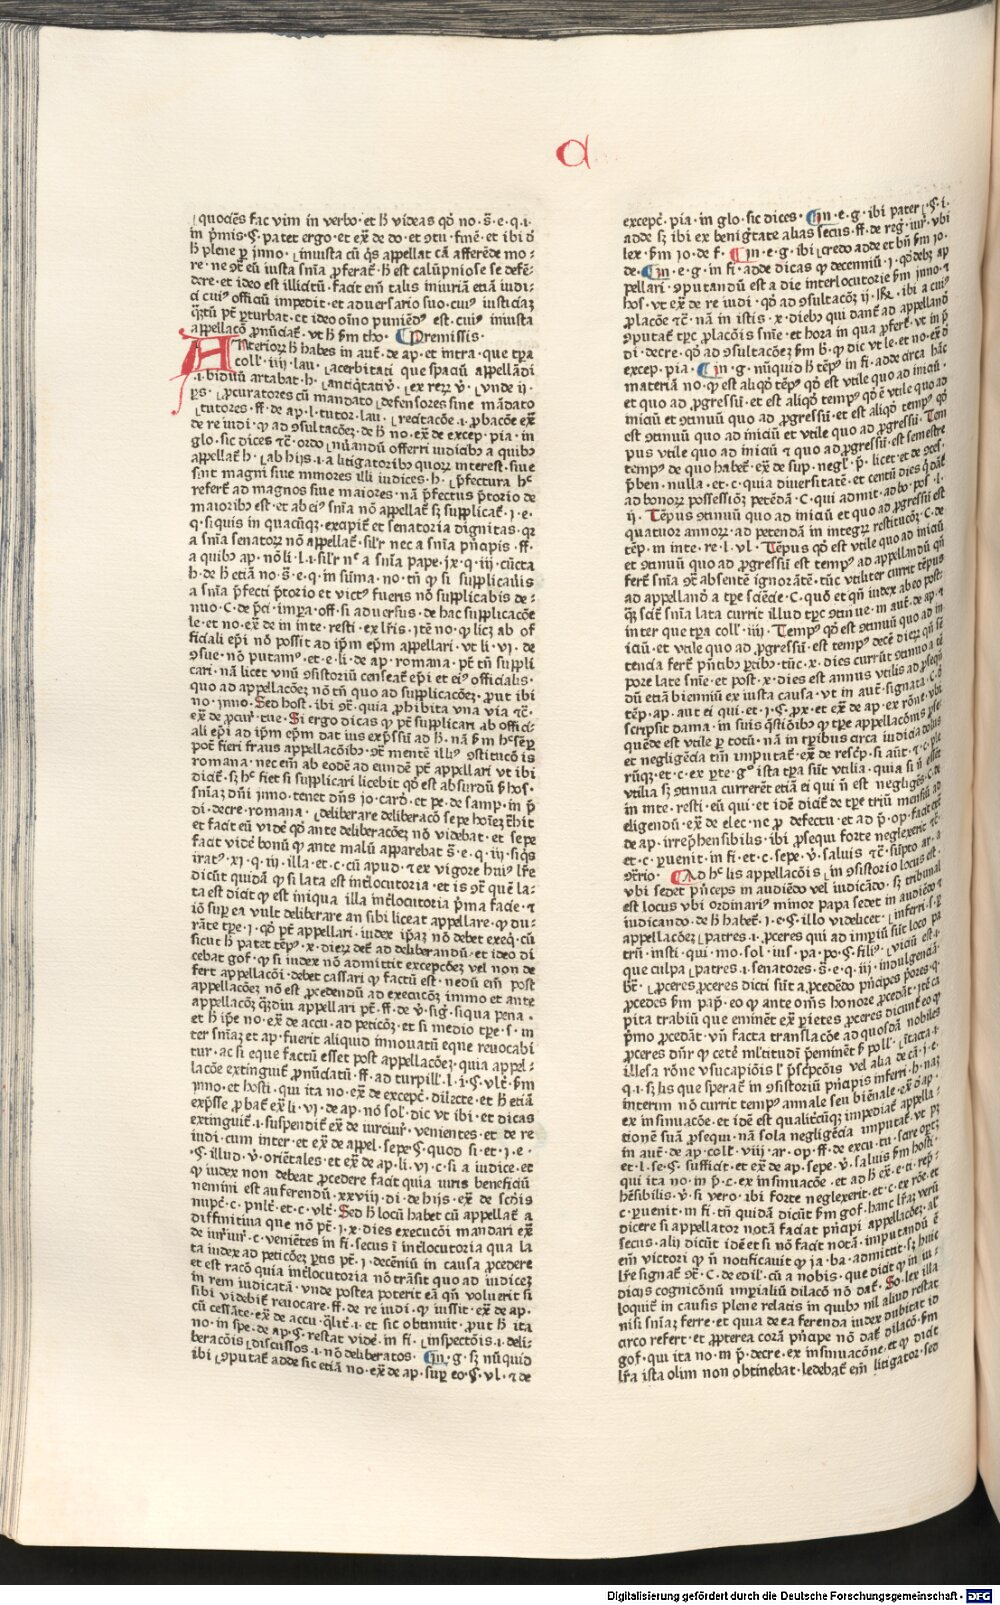 C
quociēs fac vim in verbo · et h̄ videas qđ no · s̄ · e · q · i ·
in p̄mis · ꝭ · patet ergo · et ex̄ de do · et ꝯtu · fin̄e · et ibi đ
h̄ plene ꝑ Jnno · inuista cū q̄s appellat cā afferēde mo-
re · ne ꝯt̄ eū iusta sn̄ia ꝓferat̄ · h̄ est calūpniose se defē-
dere · et ideo est illicitū · facit em̄ talis iniuriā etiā iudi-
ci cui⁹ officiū impedit · et aduersario suo · cui⁹ iusticiaȝ
q̄ȝtū pt̄ ꝑturbat · et ideo oīno puniēd⁹ est · cui⁹ iniusta
appellacō ꝓnūciat̄ · vt h̄ s̄m tho · Premissis ·
Anteriorꝝ h̄ habes in aut̄ · de ap · et intra · que tꝑa
coll̄ · iiij · lau · acerbitati que spaciū appellādi
· i · biduū artabat · h · antiq̄tati v̄ · ex rerꝝ v̄ · vnde ij ·
ꝑs · ꝓcuratores cū mandato defensores sine mādato
tutores · ff · de ap · l · tutor · lau · recitacōe · i · ꝓbacōe ex̄
de re iudi · ꝙ ad ꝯsultacōeȝ · de h̄ no · ex̄ de excep · pia · in
glo · sic dices ⁊c̄ · ordo nūandū offerri iudicib⁹ a quib⁹
appellat̄ h · ab hijs · i · a litigatorib⁹ quorꝝ interest · siue
sint magni siue minores illi iudices · h · p̄fectura hᶜ
refert̄ ad magnos siue maiores · nā p̄fectus p̄torio de
maiorib⁹ est · et ab ei⁹ sn̄ia nō appellat̄ sȝ supplicat̄ · i · e ·
q · siquis in quacūqꝫ · excipit̄ et senatoria dignitas · qꝛ
a sn̄ia senatorꝝ nō appellat̄ · sil'r nec a sn̄ia pn̄cipis · ff ·
a quib⁹ ap · nō li · l · i · sil'r nᶜ a sn̄ia pape · ix · q · iij · cūcta
h · de h̄ etiā no · s̄ · e · q · in sūma · no · tn̄ ꝙ si supplicauīs
a sn̄ia p̄fecti p̄torio et vict⁹ fueris nō supplicabis de-
nuo · C · de p̄ci · imꝑa · off · si aduersus · de hac supplicacōe
le · et no · ex̄ de in inte · resti · ex lr̄is · itē no · ꝙ licȝ ab of
ficiali ep̄i nō possit ad ip̄m ep̄m appellari · vt li · vi · de
ꝯsue · nō putam⁹ · et · e · li · de ap · romana · pt̄ tn̄ suppli
cari · nā licet vnū ꝯsistoriū censeat̄ ep̄i et ei⁹ officialis ·
quo ad appellacōeȝ nō tn̄ quo ad supplicacōeȝ · ꝓut ibi
no · Jnno · Sed host · ibi ꝯt̄ · quia ꝓhibita vna via ⁊c̄ ·
ex̄ de ꝓcur̄ · tue · Si ergo dicas ꝙ pt̄ supplicari ab offici-
ali ep̄i ad ip̄m ep̄m dat ius exp̄ssū ad h̄ · nā s̄m hᶜ sēꝑ
pot̄ fieri fraus appellacōib⁹ ꝯt̄ mentē illi⁹ ꝯstitucōis
romana · nec em̄ ab eodē ad eundē pt̄ appellari vt ibi
dicit̄ · sȝ hᶜ fiet si supplicari licebit qđ est absurdū s̄ hos ·
sn̄iaȝ dn̄i Jnno · tenet dn̄s jo · card̄ · et pe · de samp · in p̄
di · decre · romana · deliberare deliberacō sepe hoīeȝ r̄hit
et facit eū videē qđ ante deliberacōeȝ nō videbat · et sepe
facit videē bonū ꝙ ante malū apparebat s̄ · e · q · iij · siq̄s
irat⁹ · xi · q · iij · illa · et · c · cū apud · ⁊ ex vigore hui⁹ lr̄e
dicūt quidā ꝙ si lata est int̄locutoria · et is ꝯt̄ quē la-
ta est dicit ꝙ est iniqua illa int̄locutoria p̄ma facie · ⁊
iō suꝑ ea vult deliberare an sibi liceat appellare · ꝙ du-
rāte tꝑe · i · qđ pt̄ appellari · iudex ip̄aȝ nō debet exeq̄ · cū
sicut h̄ patet temp⁹ · x · dierꝝ det̄ ad deliberandū · et ideo di
cebat gof · ꝙ si iudex nō admittit excepcōeȝ vel non de
fert appellacōi · debet cassari ꝙ factū est · nedū em̄ post
appellacōeȝ nō est ꝓcedendū ad execucōȝ immo et ante
appellacōeȝ q̄ȝdiu appellari pt̄ · ff · de v̄ · sig̃ · siqua pena ·
et h̄ ip̄e no · ex̄ de accu · ad peticōeȝ · et si medio tꝑe · s · in
ter sn̄iaȝ et ap · fuerit aliquid innouatū eque reuocabi
tur · ac si eque factū esset post appellacōeȝ · quia appel-
lacōe extinguit̄ ꝓnūciatū · ff · ad turpill̄ · l · i · ꝭ · vlt̄ · s̄m
Jnno · et hosti · qui ita no · ex̄ de excepc̄ · dilecte · et h̄ etiā
exp̄sse ꝓbat̄ ex̄ li · vi · de ap · nō sol̄ · dic vt ibi · et dicas
extinguit̄ · i · suspendit̄ ex̄ de iureiur̄ · venientes · et de re
iudi · cum inter · et ex̄ de appel · sepe ꝭ · quod si · et · i · e ·
· ꝭ · illud · v̄ · oriētales · et ex̄ de ap · li · vi · c · si a iudice · et
ꝙ iudex non debeat ꝓcedere facit quia iuris beneficiū
nemini est auferendū · xxviij · di · de hijs · ex̄ de scōis
nupc̄ · c · pnl̄t̄ · et · c · vlt̄ · Sed h̄ locū habet cū appellat̄ a
diffinitiua que nō pt̄ · i · x · dies execucōi mandari ex̄
de iur̄iur̄ · c · veniētes in fi · secus ī int̄locutoria qua la
ta iudex ad peticōeȝ ꝑtis pt̄ · i · decēniū in causa ꝓcedere
et est racō quia int̄locutoria nō trāsit quo ad iudiceȝ
in rem iudicatā · vnde postea poterit eā qn̄ voluerit si
sibi videbit̄ reuocare · ff · de re iudi · ꝙ iussit · ex̄ de ap ·
cū cessāte · ex̄ de accu · q̄lit̄ · i · et sic obtinuit · ꝓut h̄ ita
no · in spe · de ap · ꝭ · restat videē · in fi · inspectōis · i · deli-
beracōis discussos · i · nō deliberatos · In · g · sȝ nūquid
ibi ꝯputat̄ adde sic etiā no · ex̄ de ap · suꝑ eo · ꝭ · vl · ⁊ de
excepc̄ · pia · in glo · sic dices · In · e · g · ibi pater · ꝭ · i ·
adde sȝ ibi ex benig̃tate alias secus · ff · de reg̃ · iur̄ · vbi
lex · s̄m jo · de f · In · e · g · ibi credo adde et bn̄ s̄m jo ·
de · In · e · g · in fi · adde dicas ꝙ decenniū · i · qđ debȝ ap
pellari ꝯputandū est a die interlocutorie s̄m Jnno · ⁊
hos · vt ex̄ de re iudi · qđ ad ꝯsultacōeȝ ij · R̄ · ibi a cui⁹
ꝓlacōe ⁊c̄ · nā in istis · x · dieb⁹ qui dant̄ ad appellandū
ꝯputat̄ tꝑc ꝓlacōis sn̄ie · et hora in qua ꝓfert̄ · vt in p̄
di · decre · qđ ad ꝯsultacōeȝ s̄m b̄ · ꝙ dic vt le · et no · ex̄ đ
excep · pia · In · g · nūquid h̄ tēp⁹ in fi · adde circa hāc
materiā no · ꝙ est aliqđ tēp⁹ qđ est vtile quo ad iniciū ·
et quo ad ꝓgressū · et est aliqđ temp⁹ qđ ē vtile quo ad
iniciū et ꝯtinuū quo ad ꝓgressū · et est aliqđ temp⁹ qđ
est ꝯtinuū quo ad iniciū et vtile quo ad ꝓgressū · Tem
pus vtile quo ad iniciū ⁊ quo ad ꝓgressū · est semestre
temp⁹ de quo habet̄ · ex̄ de sup · negl̄ · p̄ · licet · et de ꝯces ·
p̄ben · nulla · et · c · quia diuersitatē · et centū dies q̄ dāt̄
ad bonorꝝ possessiōȝ petēdā · C · qui admit · ad bo · pos · l ·
ij · Tēpus ꝯtinuū quo ad iniciū et quo ad ꝓgressū est
quatuor annorꝝ · ad petendā in integrꝝ restitucōȝ · C · de
tēp · in inte · re · l · vl · Tēpus qđ est vtile quo ad iniciū
et ꝯtinuū quo ad ꝓgressū est temp⁹ ad appellandū qn̄
fert̄ sn̄ia ꝯt̄ absentē ignorātē · tūc vtiliter currit tēpus
ad appellandū a tꝑe sciēcie · C · quō et qn̄ iudex ab eo post-
q̄ȝ scit̄ sn̄ia lata currit illud tꝑc ꝯtinue · in aut̄ · de ap · ⁊
inter que tꝑa coll̄ · iiij · Temp⁹ qđ est ꝯtinuū quo ad in
iciū · et vtile quo ad ꝓgressū · est temp⁹ decē dierꝝ qn̄ sē
tencia fert̄ pn̄tib⁹ ꝑtib⁹ · tūc · x · dies currūt ꝯtinuo a tē
pore late sn̄ie · et post · x · dies est annus vtilis ad ꝓseqn̄
dū etiā bienniū ex iusta causa · vt in aut̄ · signata · C · đ
tēp · ap · aut ei qui · et · i · ꝭ · ꝓx · et ex̄ de ap · ex rōne · vbi
scripsit dama · in suis q̄stiōib⁹ ꝙ tꝑe appellacōnis ꝓse-
quēde est vtile ꝑ totū · nā in tꝑibus circa iudicia dolus
et negligēcia tm̄ imputat̄ · ex̄ de rescp̄ · si aūt̄ · ⁊ · c · ple
rūqꝫ · et · c · ex ꝑte · g⁰ ista tꝑa sūt vtilia · quia si n̄ esset
vtilia sȝ ꝯtinua currerēt etiā ei qui n̄ est negligēs · C · de
in inte · resti · eū qui · et idē dicit̄ de tꝑe triū mensiū ad
eligendū · ex̄ de elec · ne ꝓ defectu · et ad p̄ · op · facit
de ap · irrep̄hensibilis · ibi ꝓsequi forte neglexerit ⁊c̄ ·
et · c · ꝑuenit · in fi · et · c · sepe · v̄ · saluis ⁊c̄ · sūpto ar · a
ꝯtrio · Ad hᶜ lis appellacōis in ꝯsistorio locus est ·
vbi sedet pn̄ceps in audiēdo vel iudicādo · sȝ tribunal
est locus vbi ordinari⁹ minor papa sedet in audiēdo ⁊
iudicando · de h̄ habet̄ · i · e · ꝭ · illo videlicet · inferri · s · ꝑ
appellacōeȝ patres · i · ꝓceres qui ad imꝑiū sūt loco pa
trū · insti · qui · mo · sol · ius · pa · po · ꝭ · fili⁹ · viciū est · i ·
que culpa patres · i · senatores · s̄ · e · q · iij · indulgenciā ·
br̄ · ꝓceres ꝓceres dicti sūt a ꝓcedēdo pn̄cipes p̄ores · q ·
ꝓcedes s̄m pap̄ · eo ꝙ ante om̄s honore ꝓcedāt · itē ca
pita trabiū que eminēt ex̄ ꝑietes ꝓceres dicunt̄ eo ꝙ
p̄mo ꝓcedāt · vn̄ facta translacōe ad quosdā nobiles
ꝓceres dn̄r ꝙ ceteē ml̄titudī p̄eminēt s̄ poll̄ · intacta · i ·
illesa rōne vsucapiōis l' p̄scpcōis vel alia de cā · i · e ·
q · i · sȝ lis que sperat̄ in ꝯsistoriū pn̄cipis inferri · h · naȝ
interim nō currit temp⁹ annale seu biēnale · ex̄ đ ap ·
ex insinuacōe · et idē est qualicūqꝫ impediat̄ appella-
tionē suā ꝓsequi · nā sola negligēcia imputat̄ · vt pȝ
in aut̄ · de ap · coll̄ · viij · ar · op · ff · de excu · tu · scire oportȝ
et · l · se · ꝭ · sufficit · et ex̄ de ap · sepe · v̄ · saluis s̄m hosti ·
qui ita no · in p̄ · c · ex insinuacōe · et ad h̄ ex̄ · e · ti · rep̄-
hēsibilis · v̄ · si vero · ibi forte neglexerit · et · c · ex rōe · et
c · ꝑuenit · in fi · tn̄ quidā dicūt s̄m gof · hanc lr̄aȝ verū
dicere si appellator notā faciat pn̄cipi appellacōeȝ · al'
secus · alij dicūt idē et si nō faciat notā · imputandū ē
em̄ victori ꝙ n̄ notificauit ꝙ ja · ba · admitit · sȝ huic
lr̄e signat̄ ꝯt̄ · C · de edil̄ · cū a nobis · que dicit ꝙ in iu-
dicijs cognicōnū imꝑialiū dilacō nō dat̄ · So · lex illa
loquit̄ in causis plene relatis in quib⁹ nil aliud restat
nisi sn̄iaȝ ferre · et quia de ea ferenda iudex dubitat id
circo refert · et ꝓpterea corā pn̄cipe nō dat̄ dilacō s̄m
gof · qui ita no · in p̄ · decre · ex insinuacōne · et ꝙ dicit
lr̄a ista olim non obtinebat · ledebat̄ em̄ litigator · sed
Digitalisierung gefördert durch die Deutsche Forschungsgemeinschaft - DFG